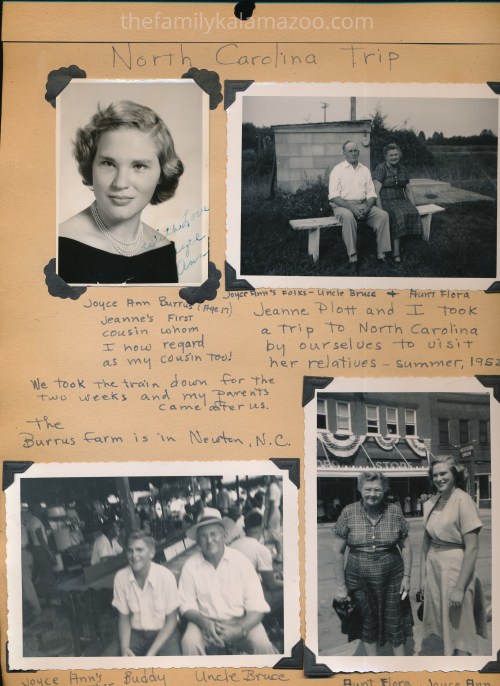 thefamilykalamazoo.com
North Carolina Trip
with Love
Ann
Joyce Ann Burrus (Age 17)
Jeanne's First
cousin whom
I now regard
as my cousin too!
Joyce Ann's Folks - Uncle Bruce & Aunt Flora
Jeanne Plott and I took
a trip to North Carolina
by ourselves to visit
her relatives - summer, 1952
We took the train down for the
two weeks and my parents
came after us.
the
Burrus Farm is in Newton, N.C.
Joyce Ann's Buddy Uncle Bruce
Aunt Flora Joyce Ann